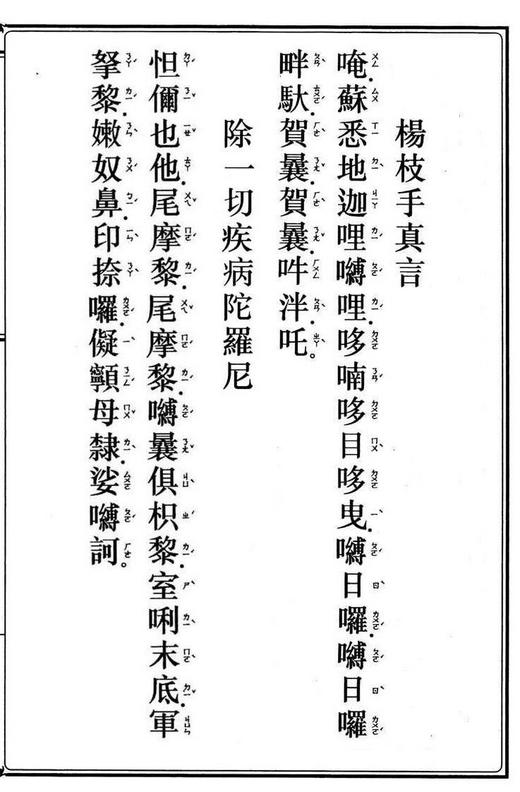 楊枝手真言
唵.蘇悉地迦哩嚩哩.哆喃哆目哆曳.嚩日囉.嚩日囉
畔馱賀曩賀曩吽泮吒。
除一切疾病陀羅尼
怛儞也他.尾摩黎.尾摩黎.嚩曩俱枳黎.室唎末底.軍
拏黎.嫩奴鼻.印捺囉.儗顙母隸.娑嚩訶。